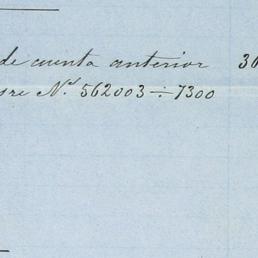 de cuenta anterior 30
sre Nº 562003 ÷ 7300